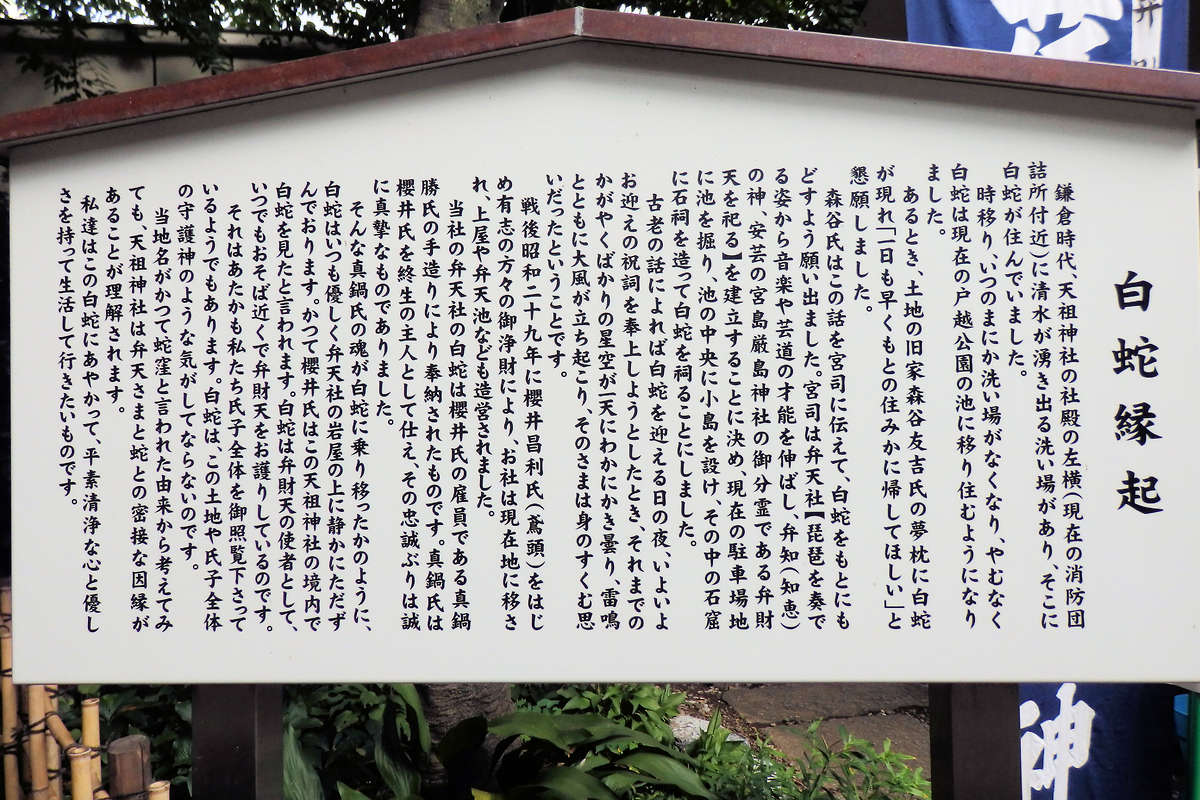 白蛇縁起
鎌倉時代、天祖神社の社殿の左横(現在の消防団
詰所付近)に清水が湧き出る洗い場があり、そこに
白蛇が住んでいました。
時移り、いつのまにか洗い場がなくなり、やむなく
白蛇は現在の戸越公園の池に移り住むようになり
ました。
あるとき、土地の旧家森谷友吉氏の夢枕に白蛇
が現れ「一日も早くもとの住みかに帰してほしい」と
懇願しました。
森谷氏はこの話を宮司に伝えて、白蛇をもとにも
どすよう願い出ました。宮司は弁天社【琵琶を奏で
る姿から音楽や芸道の才能を伸ばし、弁知(知恵)
の神、安芸の宮島厳島神社の御分霊である弁財
天を祀る】を建立することに決め、現在の駐車場地
に池を掘り、池の中央に小島を設け、その中の石窟
に石祠を造って白蛇を祠ることにしました。
古老の話によれば白蛇を迎える日の夜、いよいよ
お迎えの祝詞を奉上しようとしたとき、それまでの
かがやくばかりの星空が一天にわかにかき曇り、雷鳴
とともに大風が立ち起こり、そのさまは身のすくむ思
いだったということです。
戦後昭和二十九年に櫻井昌利氏(鳶頭)をはじ
め有志の方々の御浄財により、お社は現在地に移さ
れ、上屋や弁天池なども造営されました。
当社の弁天社の白蛇は櫻井氏の雇員である真鍋
勝氏の手造りにより奉納されたものです。真鍋氏は
櫻井氏を終生の主人として仕え、その忠誠ぶりは誠
に真摯なものでありました。
そんな真鍋氏の魂が白蛇に乗り移ったかのように、
白蛇はいつも優しく弁天社の岩屋の上に静かにただず
んでおります。かつて櫻井氏はこの天祖神社の境内で
白蛇を見たと言われます。白蛇は弁財天の使者として、
いつでもおそば近くで弁財天をお護りしているのです。
それはあたかも私たち氏子全体を御照覧下さって
いるようでもあります。白蛇は、この土地や氏子全体
の守護神のような気がしてならないのです。
当地名がかつて蛇窪と言われた由来から考えてみ
ても、天祖神社は弁天さまと蛇との密接な因縁が
あることが理解されます。
私達はこの白蛇にあやかって、平素清浄な心と優し
さを持って生活して行きたいものです。
神